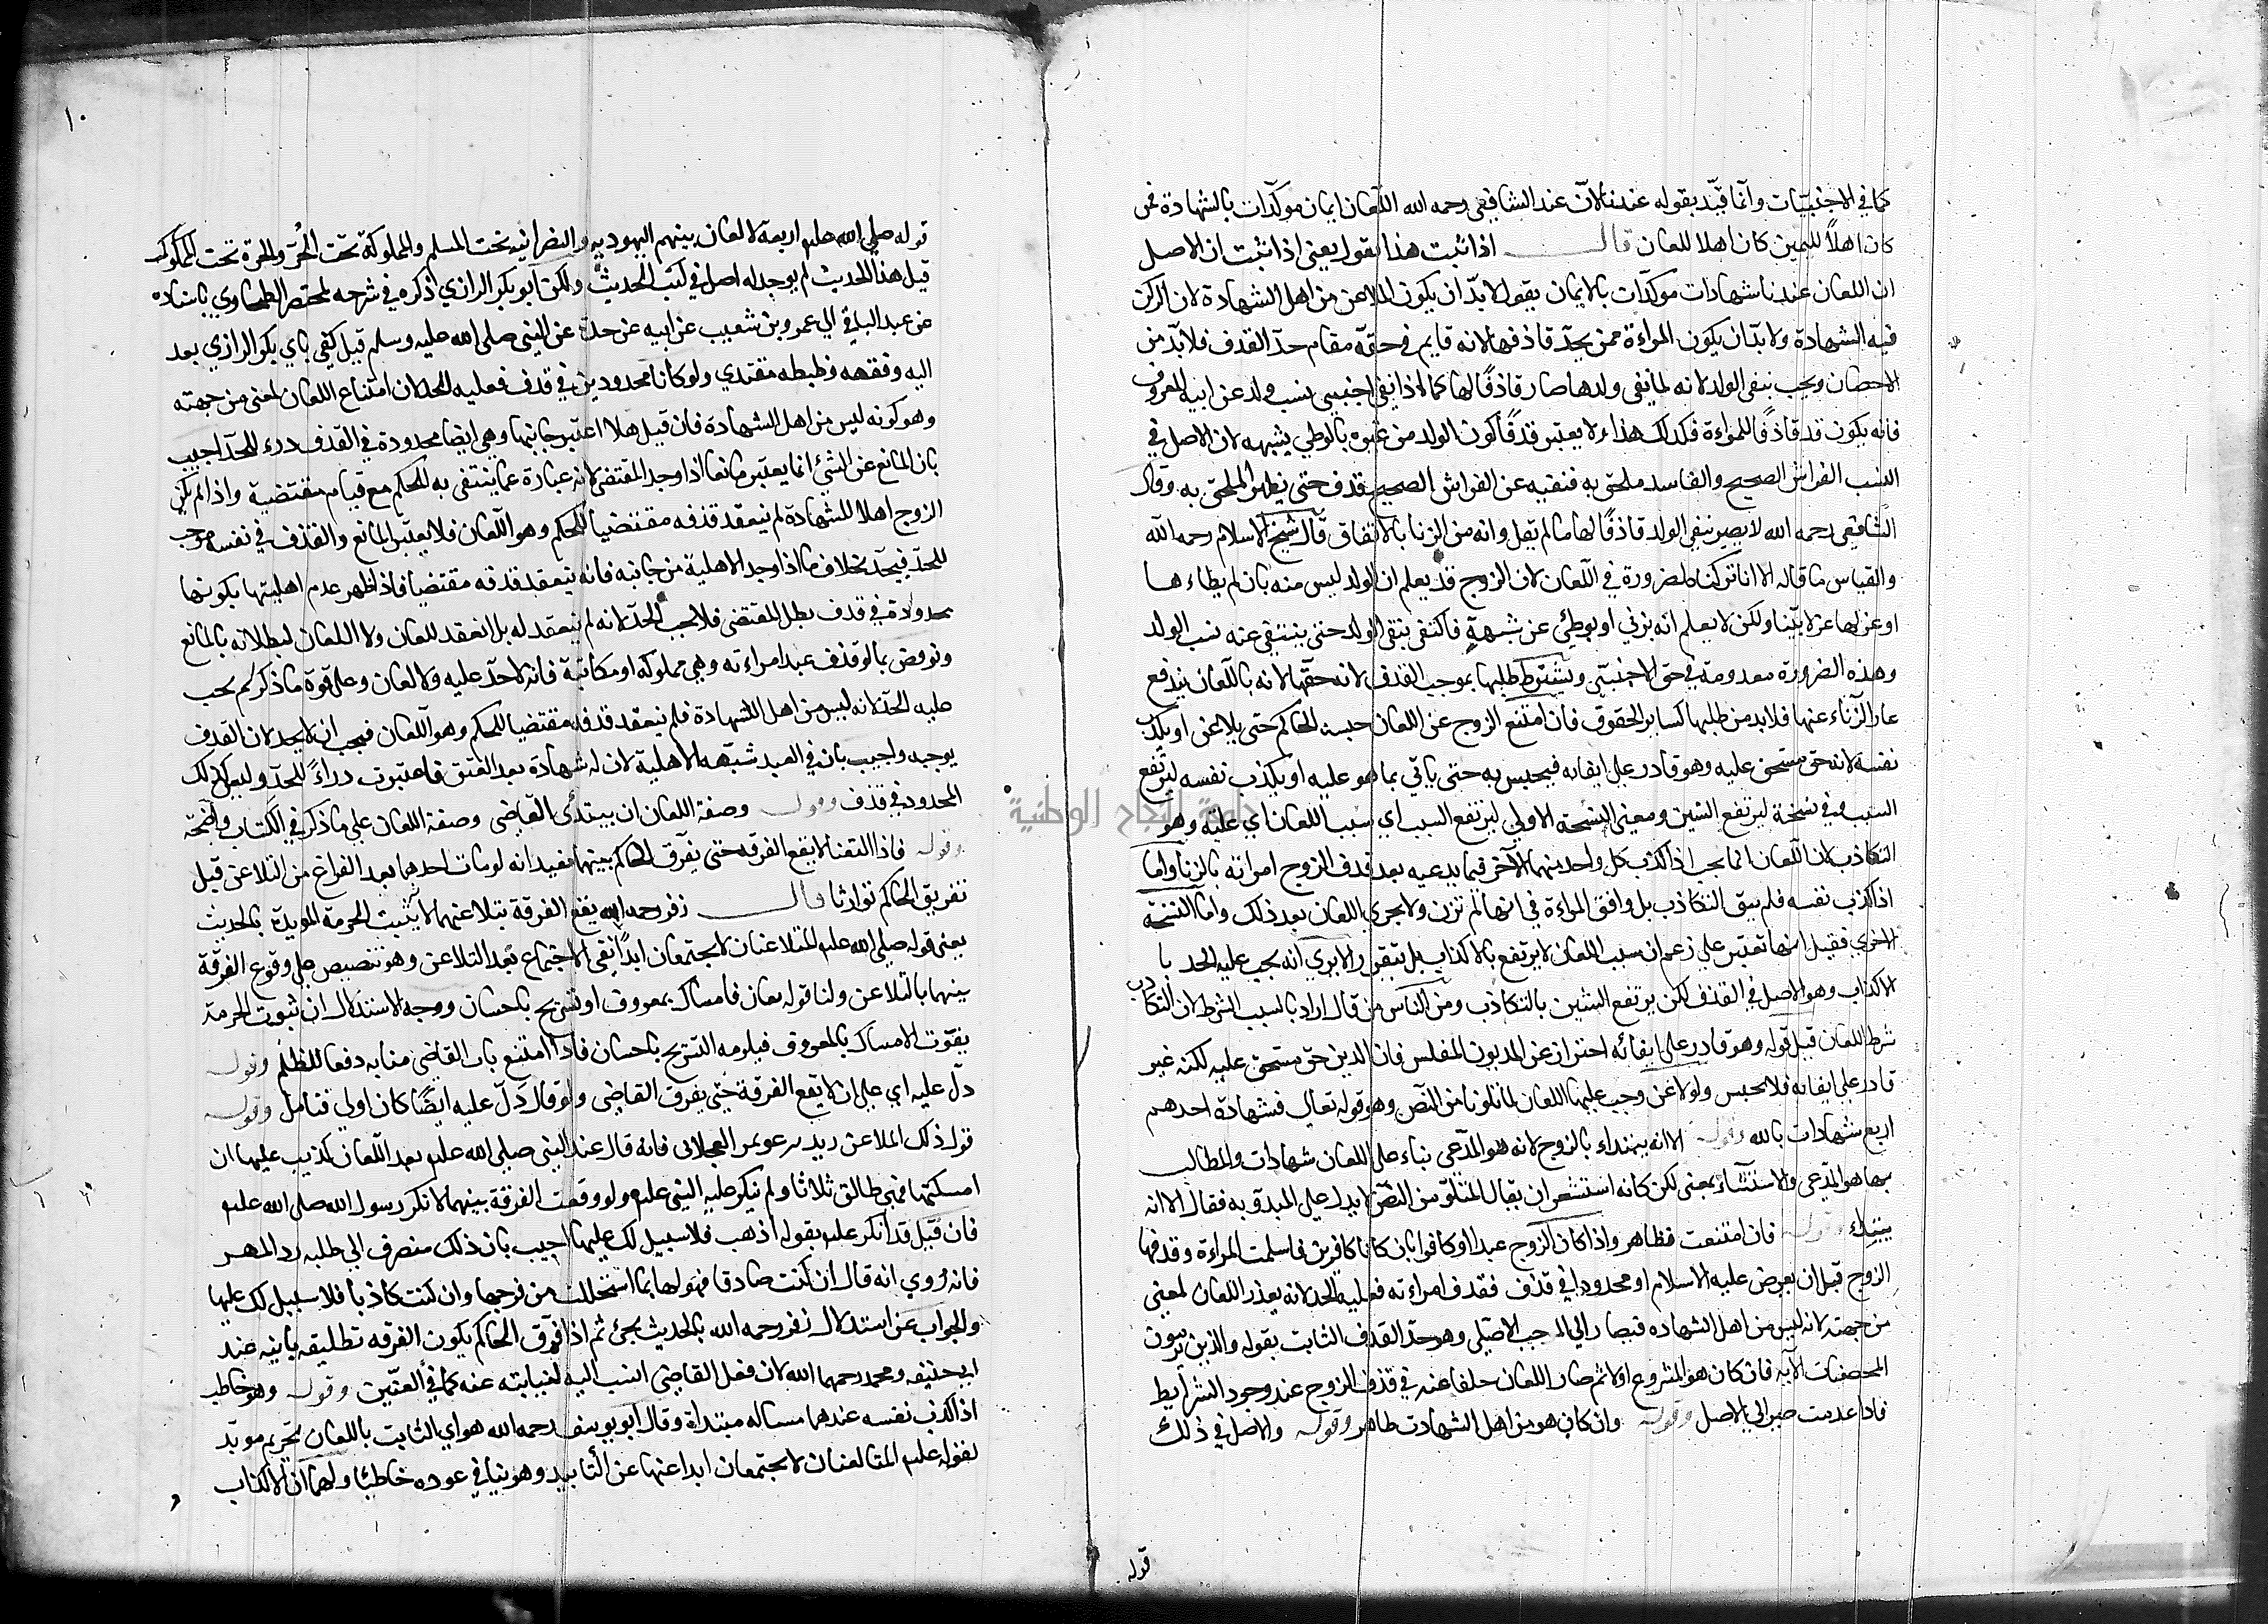 كما في الاجنبيات وانما قيد بقوله عندنا لان عند الشافعي رحمه الله اللعان ايمان موكدات بالشهادة فمن
كان اهلاً لليمين كان اهلا للعان قال اذا ثبت هذا نقول يعني اذا ثبت ان الاصل
ان اللعان عندنا شهادات موكدات بالايمان يقول لا بد ان يكون الملاعن من اهل الشهادة لان الركن
فيه الشهادة ولا بد ان يكون المراءة ممن يحد قاذفها لانه قايم في حقه مقام حد القذف فلا بد من
الاحصان ويجب بنفي الولد لانه لما نفى ولدها صار قاذفًا لها كما اذا نفى اجنبي نسب ولد عن ابيه المعروف
فانه يكون قد قاذفًا للمراءة فكذلك هذا ولا يعتبر قذفًا كون الولد من غيره بالوطي بشبهه لان الاصل في
النسب الفراش الصحيح والفاسد ملحق به فنفيه عن الفراش الصحيح قذف حتى يظهر الملحق به وقال
الشافعي رحمه الله لا يصير بنفي الولد قاذفًا لها ما لم يقل وانه من الزنا بالاتفاق قال شيخ الاسلام رحمه الله
والقياس ما قاله الا انا تركناه لضرورة في اللعان لان الزوج قد يعلم ان الولد ليس منه بان لم يطاءها
او عزلها عزلا بينا ولكن لا يعلم انه بزني او بوطئ عن شبهةٍ فاكتفى بنفي الولد حتى ينتفي عنه نسب الولد
وهذه الضرورة معدومة في حق الاجنبي ويشترط طلبها بموجب القذف لانه حقها لانه باللعان يندفع
عار الزناء عنها فلا بد من طلبها كساير الحقوق فان امتنع الزوج عن اللعان حبسه الحاكم حتى يلاعن او يكذب
نفسه لانه حق مستحق عليه وهو قادر على ايفايه فيحبس به حتى ياتي بما هو عليه او يكذب نفسه ليرتفع
السبب وفي نسخة ليرتفع الشين ومعنى النسخة الاولى ليرتفع السبب اي سبب اللعان اي عليه وهو
التكاذب لان اللعان انما يجب اذا اكذب كل واحد منهما الآخر فيما يدعيه بعد قذف الزوج امراته بالزنا واما
اذا اكذب نفسه فلم يبق التكاذب بل وافق المراءة في انها لم تزن ولا يجري اللعان بعد ذلك واما النسخة
الاخرى فقيل انها تعتبر على زعم ان سبب اللعان لا يرتفع بالاكذاب بل يتقرر الا يرى انه يجب عليه الحد با
الاكذاب وهو الاصل في القذف لكن يرتفع الشين بالتكاذب ومن الناس من قال اراد بالسبب الشرط لان التكاذب
شرط اللعان قيل قوله وهو قادر على ايفائه احتراز عن المديون المفلس فان الدين حق مستحق عليه لكنه غير
قادر على ايفايه فلا يحبس ولو لاعن وجب عليها اللعان لما تلونا من النص وهو قوله تعالى فشهادة احدهم
اربع شهادات بالله وقوله الا انه يبتداء بالزوج لانه هو المدعي بناء على اللعان شهادات والمطالب
بها هو المدعي والاستثناء بمعنى لكن كانه استشعر ان يقال المتلو من النص لا يدل على المبدو به فقال الا انه
يبتدئ وقوله فان امتنعت فظاهر واذا كان الزوج عبدا او كافرا بان كانا كافرين فاسلمت المراءة وقذفها
الزوج قبل ان يعرض عليه الاسلام او محدودا في قذف فقذف امراءته فعليه الحد لانه يعذر اللعان لمعنى
من جهته لانه ليس من اهل الشهاده فيصار الى الموجب الاصلي وهو حد القذف الثابت بقوله والذين يرمون
المحصنات الآيه فان كان هو المشروع اولا ثم صار اللعان خلفا عنه في قذف الزوج عند وجود الشرايط
فاذا عدمت صير الى الاصل وقوله وان كان هو من اهل الشهادت ظاهر وقوله والاصل في ذلك
قوله
١٠
قوله صلى الله عليه اربعة لا لعان بينهم اليهوديه والنصرانيه تحت المسلم والمملوكة تحت الحُر والحرة تحت المملوك
قيل هذا الحديث لم يوجد له اصل في كتب الحديث ولكن ابو بكر الرازي ذكره في شرحه لمختصر الطحاوي باسناده
عن عبد الباقي الى عمرو بن شعيب عن ابيه عن جده عن النبي صلى الله عليه وسلم قيل كفى باي بكر الرازي بعد
اليه وفقهه وظبطه مقتدي ولو كانا محدودين في قذف فعليه الحد لان امتناع اللعان لمعنى من جهته
وهو كونه ليس من اهل الشهادة فان قيل هلا اعتبر جانبها وهي ايضا محدودة في القذف درء للحد اجيب
بان المانع عن الشئ انما يعتبر مانعا اذا وجد المقتضى لانه عبارة عما ينتفى به الحكم مع قيام مقتضية واذا لم يكن
الزوج اهلا للشهادة لم ينعقد قذفه مقتضيا للحكم وهو اللعان فلا يعتبر المانع والقذف في نفسه موجب
للحد فيحد بخلاف ما اذا وجد الاهلية من جانبه فانه ينعقد قذفه مقتضيا فاذا ظهر عدم اهليتها بكونها
محدودة في قذف بطل المقتضى فلا يجب الحد لانه لم ينعقد له بل انعقد للعان ولا اللعان لبطلانه بالمانع
ونوقض بما لو قذف عبد امراءته وهي مملوكه او مكاتبة فانه لا حد عليه ولا لعان وعلى قوة ما ذكر لم يجب
عليه الحد لانه ليس من اهل الشهادة فلم ينعقد قذفه مقتضيا للحكم وهو اللعان فيجب ان لا يحد لان القذف
يوجبه واجيب بان في العبد شبهه الاهلية لان له شهادة بعد العتق فاعتبرت دراءً للحد وليس كذلك
المحدود في قذف وقوله وصفة اللعان ان يبتدئ القاضي وصفة اللعان على ما ذكر في الكتاب واضحة
وقوله فاذا التعنا لا يقع الفرقه حتى يفرق الحاكم بينهما يفيد انه لو مات احدهما بعد الفراغ من التلاعن قبل
تفريق الحاكم توارثا قال زفر رحمه الله يقع الفرقة بتلاعنهما لا يثبت الحرمة المويدة بالحديث
يعني قوله صلى الله عليه المتلاعنان لا يجتمعان ابداً نفى الاجتماع بعد التلاعن وهو تنصيص على وقوع الفرقة
بينهما بالتلاعن ولنا قوله تعالى فامساك بمعروف او تسريح باحسان ووجه الاستدلال ان ثبوت الحرمة
يفوت الامساك بالمعروف فيلزمه التسريح باحسان فاذا امتنع ناب القاضي منابه دفعا للظلم وقوله
دل عليه اي على ان لا تقع الفرقة حتى يفرق القاضي ولو قال دَلّ عليه ايضًا كان اولي فتامل وقوله
قول ذلك الملاعن يريد به عويمر العجلانى فانه قال عند النبي صلى الله عليه بعد اللعان كذبت عليها ان
امسكتها فهي طالق ثلاثا ولم ينكر عليه النبي عليه ولو وقعت الفرقة بينهما لانكر رسول الله صلى الله عليه
فان قيل قد انكر عليه بقوله اذهب فلا سبيل لك عليها اجيب بان ذلك منصرف الى طلبه رد المهر
فانه رُوي انه قال ان كنت صادقا فهو لها بما استحللت من فرجها وان كنت كاذبا فلا سبيل لك عليها
والجواب عن استدلال زفر رحمه الله بالحديث يجئ ثم اذا فرق الحاكم يكون الفرقه تطليقه باينه عند
ابي حنيفه ومحمد رحمهما الله لان فعل القاضي انتسب اليه لنيابته عنه كما في العنين وقوله وهو خاطب
اذا اكذب نفسه عندهما مساله مبتداة وقال ابو يوسف رحمه الله هو اي الثابت باللعان تحريم موبد
لقوله عليه المتلاعنان لا يجتمعان ابدا عنها عن التابيد وهو ينافي عوده خاطبا ولهما ان الاكذاب
جامعة النجاح الوطنية